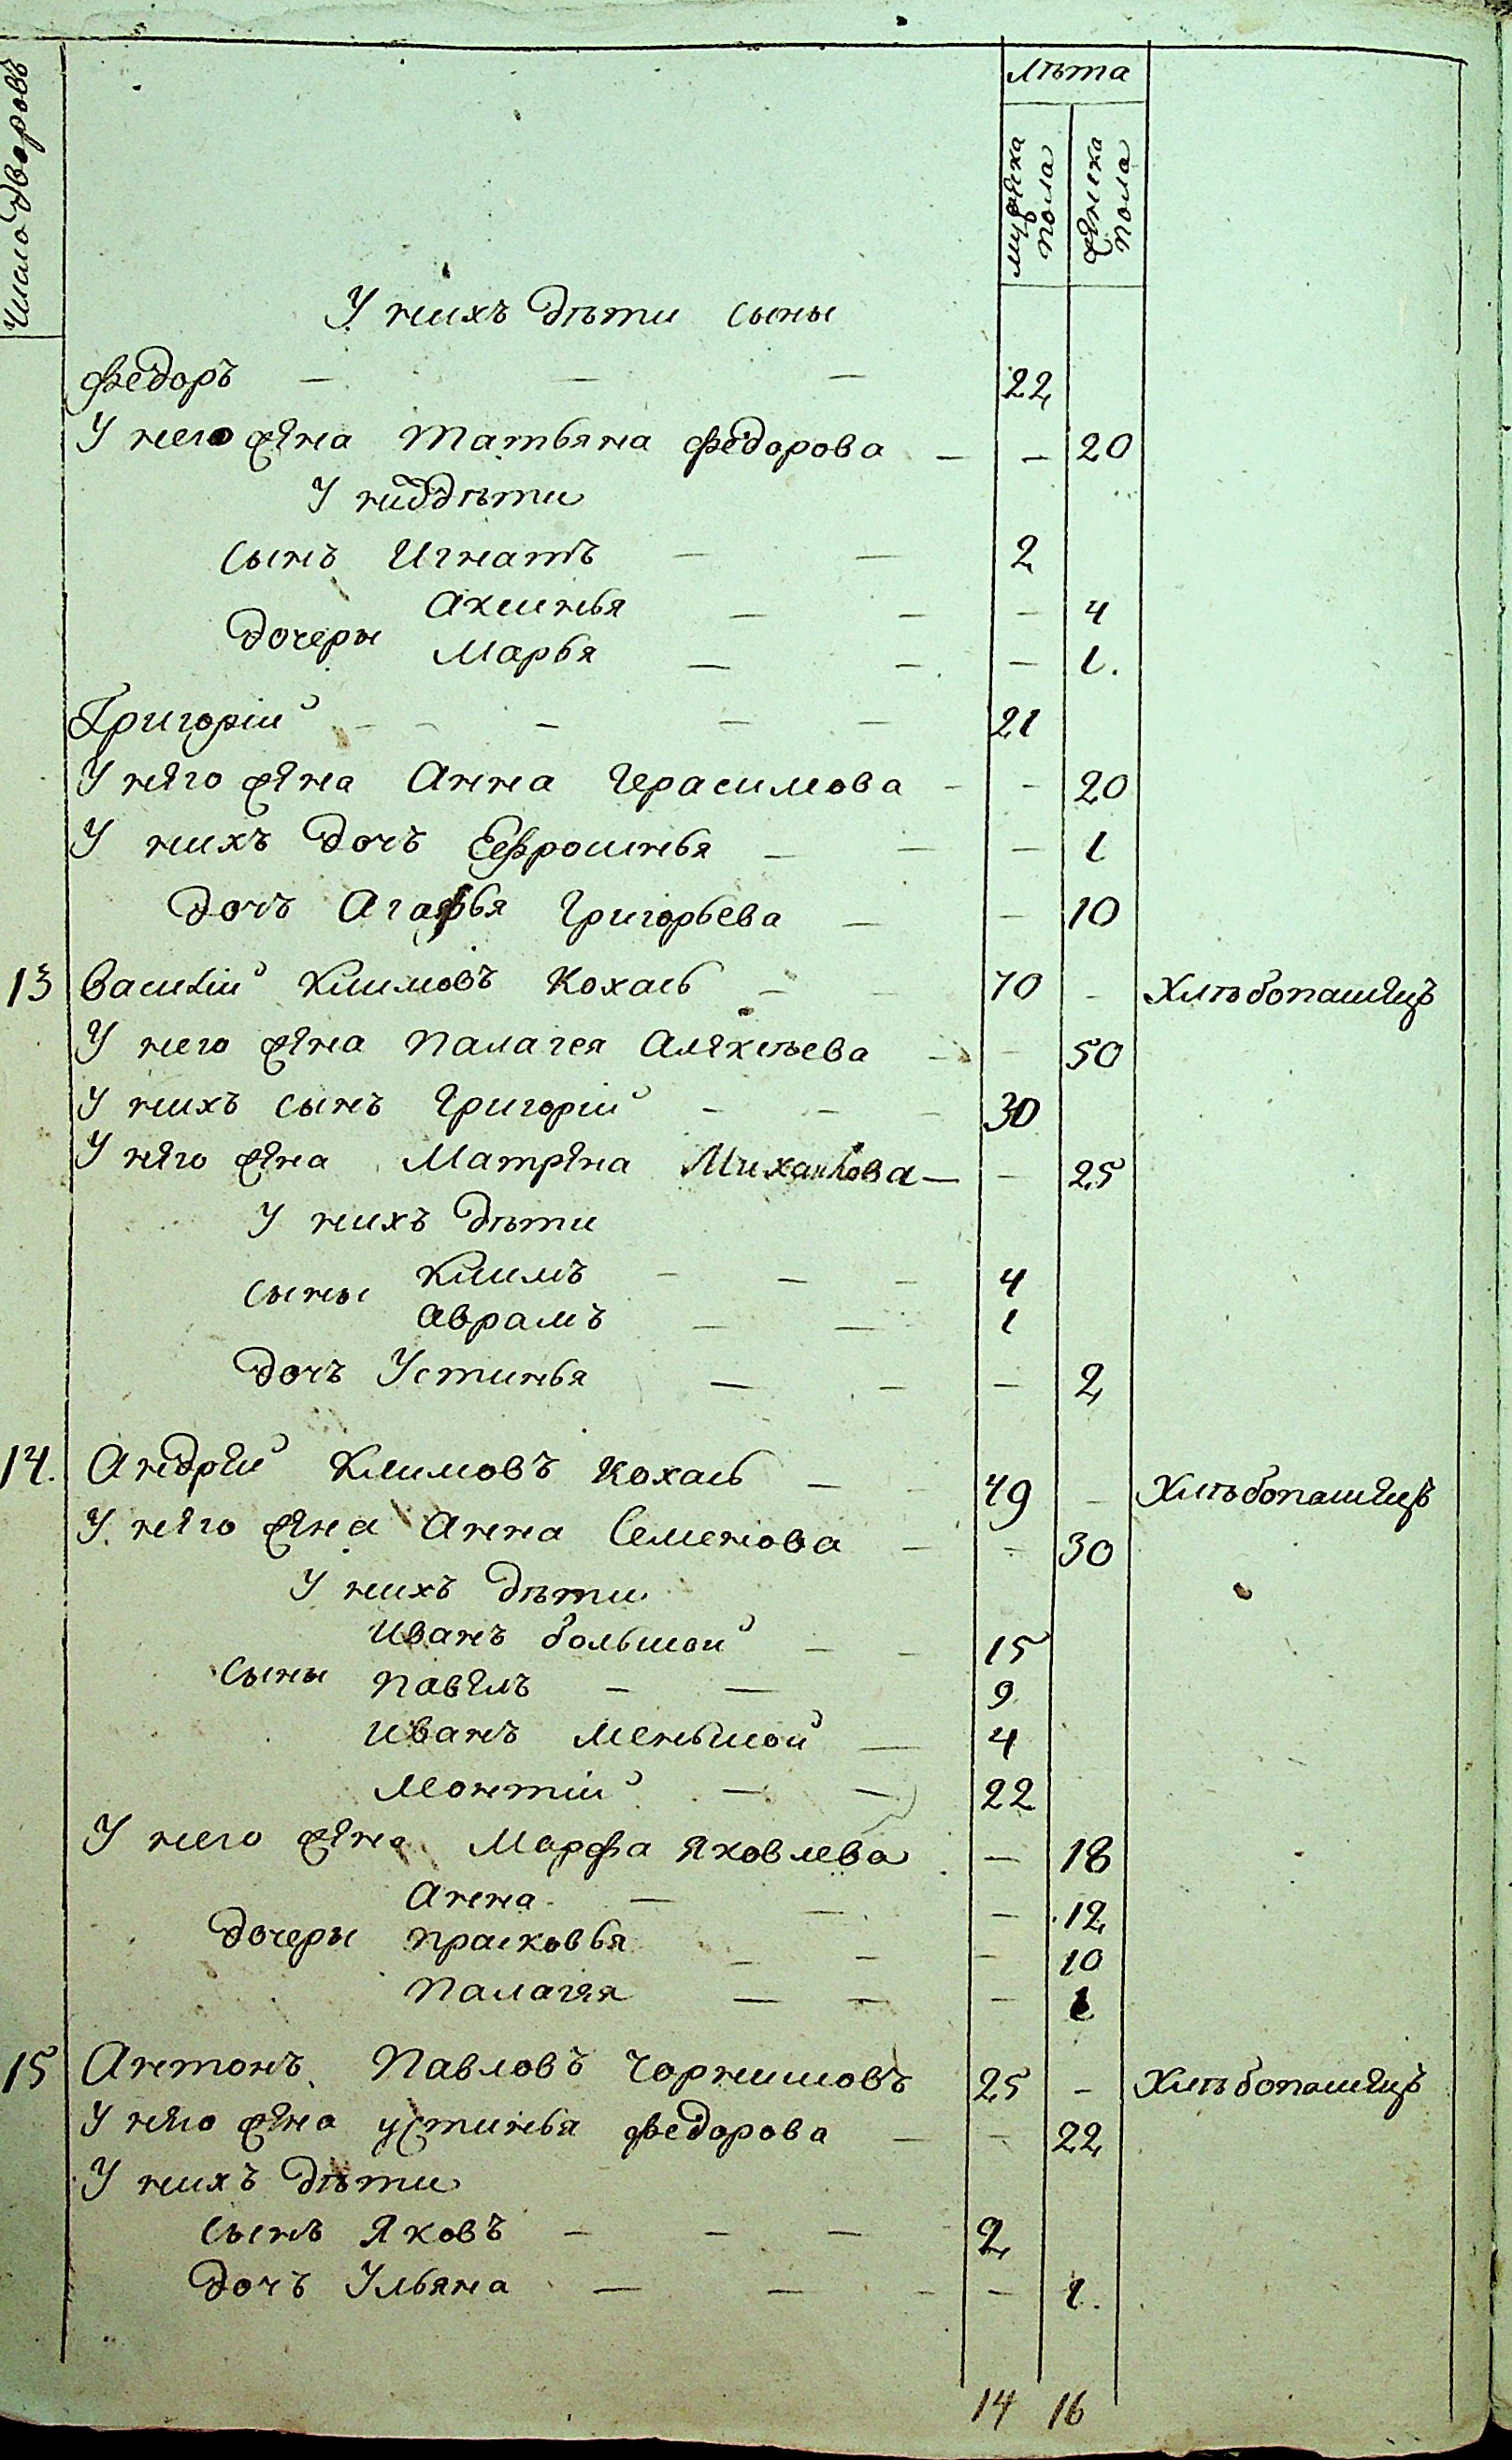 Число дворовъ
лѣта
мужеска пола
женска пола
У нихъ дѣти сыны
Федоръ — — — 22
У него жена Татьяна Федорова — — 20
У них дѣти
сынъ Игнатъ — — 2
Аксинья — — — 4
дочеры
Марья — — — 1.
Григорій — — — — 21
У него жена Анна Герасимова — — 20
У нихъ дочъ Еефросинья — — — 1
дочъ Агафья Григорьева — — 10
13 Василій Климовъ Кохась — — 70 — Хлѣбопашецъ
У него жена Палагея Алексѣева — — 50
У нихъ сынъ Григорій — — — 30
У него жена Матрена Михайлова — — 25
У нихъ дѣти
Климъ — — — 4
сыны
Аврамъ — — 1
дочъ Устинья — — — 2
14. Андрей Климовъ Кохась — — 49 — Хлѣбопашецъ
У него жена Анна Семенова — — 30
У нихъ дѣти
Иванъ большой — — 15
сыны Павелъ — — 9
Иванъ меньшой — 4
Леонтій — — 22
У него жена Марфа Яковлева — 18
Анна — — — 12
дочеры Прасковья — — — 10
Палагея — — — 1
15 Антонъ Павловъ Чорнишовъ 25 — Хлѣбопашецъ
У него жена Устинья Федорова — — 22
У нихъ дѣти
сынъ Яковъ — — — 2
дочъ Ульяна — — — — 1.
14 16